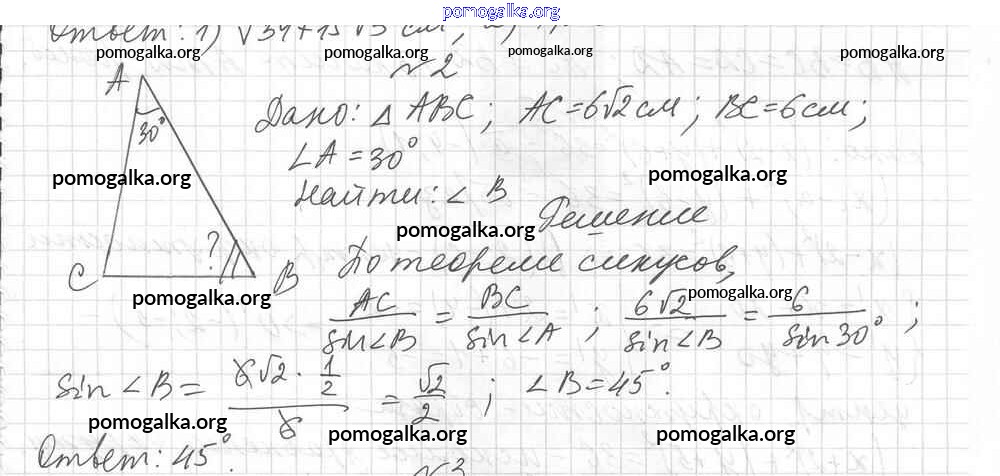 pomogalka.org
Ответ: 1) √34+15√3 см; 2)
pomogalka.org pomogalka.org pomogalka.org pomogalka.org
№2
A
30°
Дано: △ ABC; AC=6√2 см; BC=6 см;
∠A=30°
pomogalka.org pomogalka.org
Найти: ∠B
pomogalka.org
Решение
C ? B
По теореме синусов,
pomogalka.org pomogalka.org
AC/sin∠B = BC/sin∠A ; 6√2/sin∠B = 6/sin30° ;
sin∠B = 6√2 · 1/2 / 6 = √2/2 ; ∠B=45°.
pomogalka.org pomogalka.org pomogalka.org
Ответ: 45°.
№3